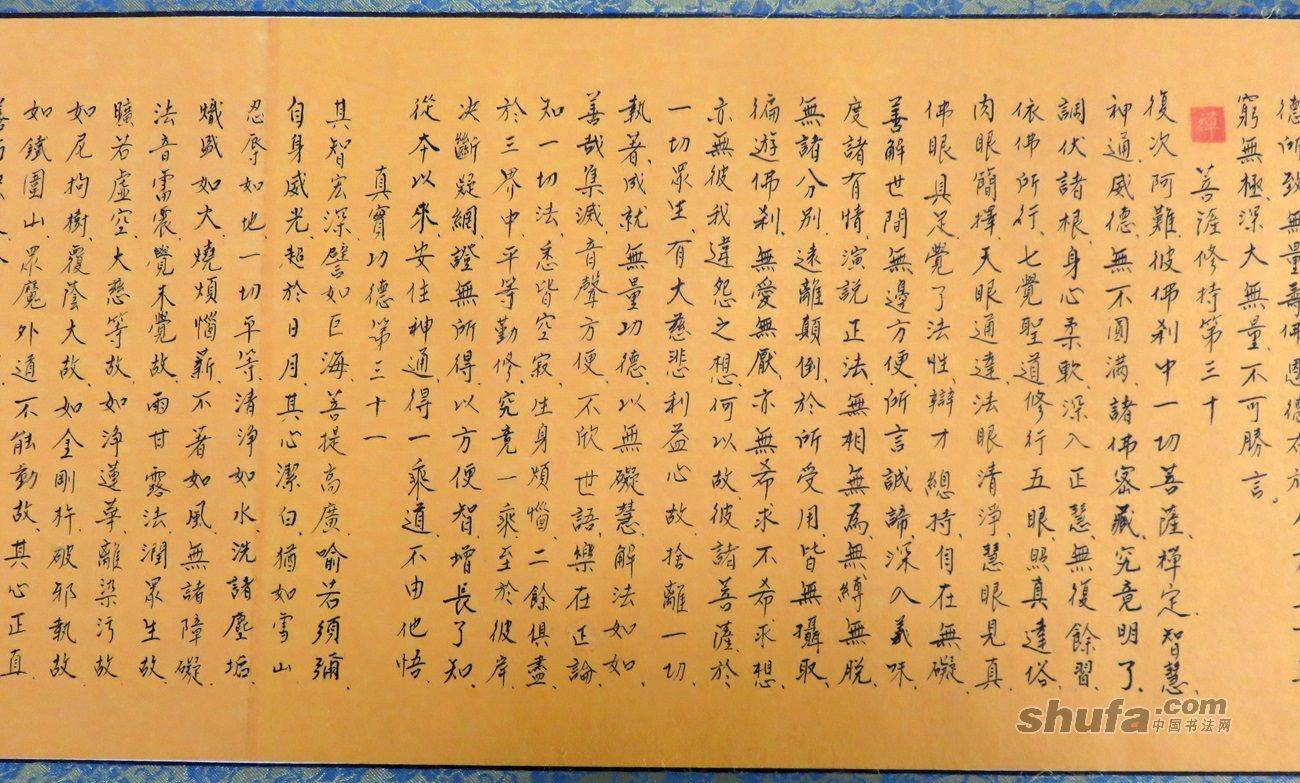 德所致無量壽佛恩德
窮無極深大無量不可勝言。
菩薩修持第三十
禪
復次阿難彼佛剎中一切菩薩禪定智慧、
神通威德無不圓滿、諸佛密藏究竟明了、
調伏諸根、身心柔軟、深入正慧、無復餘習、
依佛所行、七覺聖道、修行五眼、照真達俗、
肉眼簡擇、天眼通達、法眼清淨、慧眼見真、
佛眼具足、覺了法性、辯才總持、自在無礙、
善解世間無邊方便、所言誠諦、深入義味、
度諸有情、演說正法、無相無為、無縛無脫、
無諸分別、遠離顛倒、於所受用、皆無攝取、
徧遊佛剎、無愛無厭、亦無希求不希求想、
亦無彼我違怨之想、何以故、彼諸菩薩、於
一切眾生、有大慈悲利益心故、捨離一切
執著、成就無量功德、以無礙慧、解法如如、
善哉集滅音聲方便、不欣世語、樂在正論、
知一切法、悉皆空寂、生身煩惱、二餘俱盡、
於三界中、平等勤修、究竟一乘、至於彼岸、
決斷疑網、證無所得、以方便智、增長了知、
從本以來、安住神通、得一乘道、不由他悟
真實功德第三十一
其智宏深、譬如巨海、菩提高廣、喻若須彌、
自身威光、超於日月、其心潔白、猶如雪山
忍辱如地、一切平等、清淨如水、洗諸塵垢、
熾盛如火、燒煩惱薪、不著如風、無諸障礙、
法音雷震、覺未覺故、雨甘露法、潤眾生故、
曠若虛空、大慈等故、如淨蓮華、離染污故
如尼拘樹、覆蔭大故、如金剛杵、破邪執故
如鐵圍山、眾魔外道不能動故、其心正直
shufa.com
中国书法网